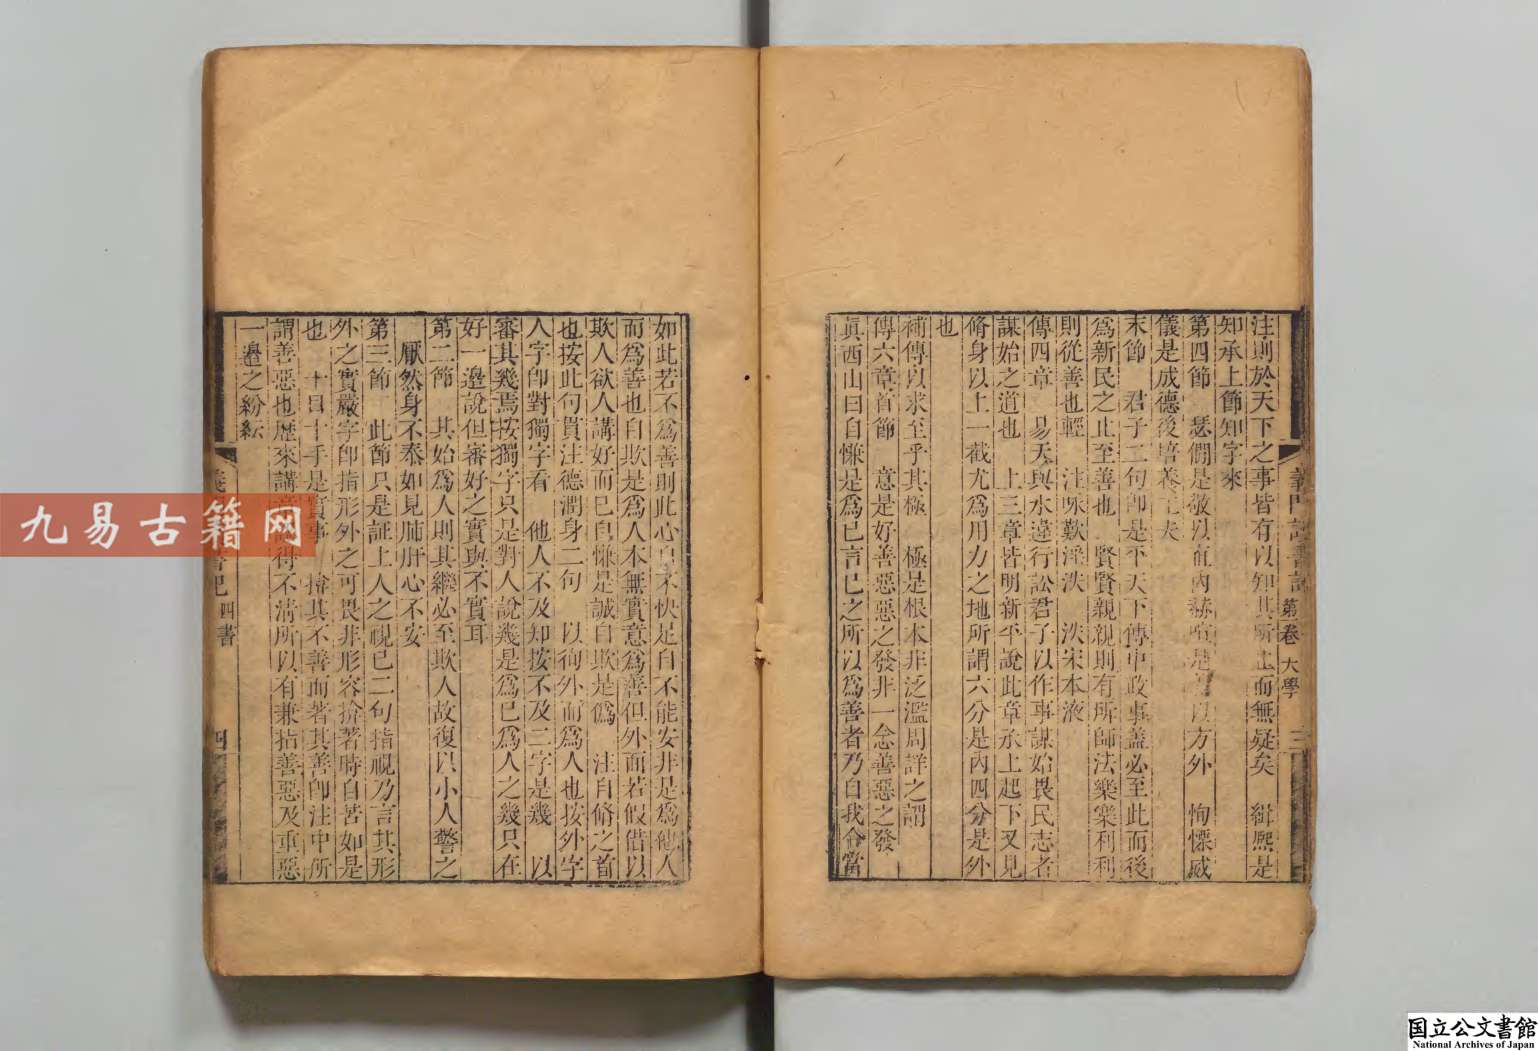 注則於天下之事皆有以知其所止而無疑矣　緝熙是
知承上節知字來
第四節　瑟僩是敬以直內赫喧是以方外　恂慄威
儀是成德後培養工夫
末節　君子二句卽是平天下傳中政事蓋必至此而後
爲新民之止至善也　賢賢親親則有所師法樂樂利利
則從善也輕　注咏歎淫泆　泆宋本液
傳四章　易天與水違行訟君子以作事謀始畏民志者
謀始之道也　上三章皆明新平說此章承上起下又見
脩身以上一截尤爲用力之地所謂六分是內四分是外
也
補傳以求至乎其極　極是根本非泛濫周詳之謂
傳六章首節　意是好善惡惡之發非一念善惡之發
眞西山曰自慊是爲己言己之所以爲善者乃自我合當
義門讀書記　第卷　大學　三
如此若不爲善則此心自不快足自不能安非是爲他人
而爲善也自欺是爲人本無實意爲善但外面若假借以
欺人欲人講好而已自慊是誠自欺是僞　注自脩之首
也按此句貫注德潤身二句　以徇外而爲人也按外字
人字卽對獨字看　他人不及知按不及二字是幾　以
審其幾焉按獨字只是對人說幾是爲己爲人之幾只在
好一邊說但審好之實與不實耳
第二節　其始爲人則其繼必至欺人故復以小人警之
厭然身不泰如見肺肝心不安
第三節　此節只是証上人之視己二句指視乃言其形
外之實嚴字卽指形外之可畏非形容揜著時自苦如是
也　十目十手是實事　揜其不善而著其善卽注中所
謂善惡也歷來講章說得不淸所以有兼指善惡及重惡
一邊之紛紜
書記　四書　四
九易古籍网
国立公文書館
National Archives of Japan